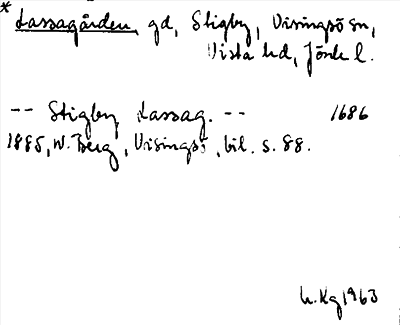 * Lassagården, gd, Stigby, Visingsö sn,
Vista hd, Jönk l.
-- Stigby Lassag. -- 1686
1885, W. Berg, Visingsö, bil. s. 88.
h. Kg 1963